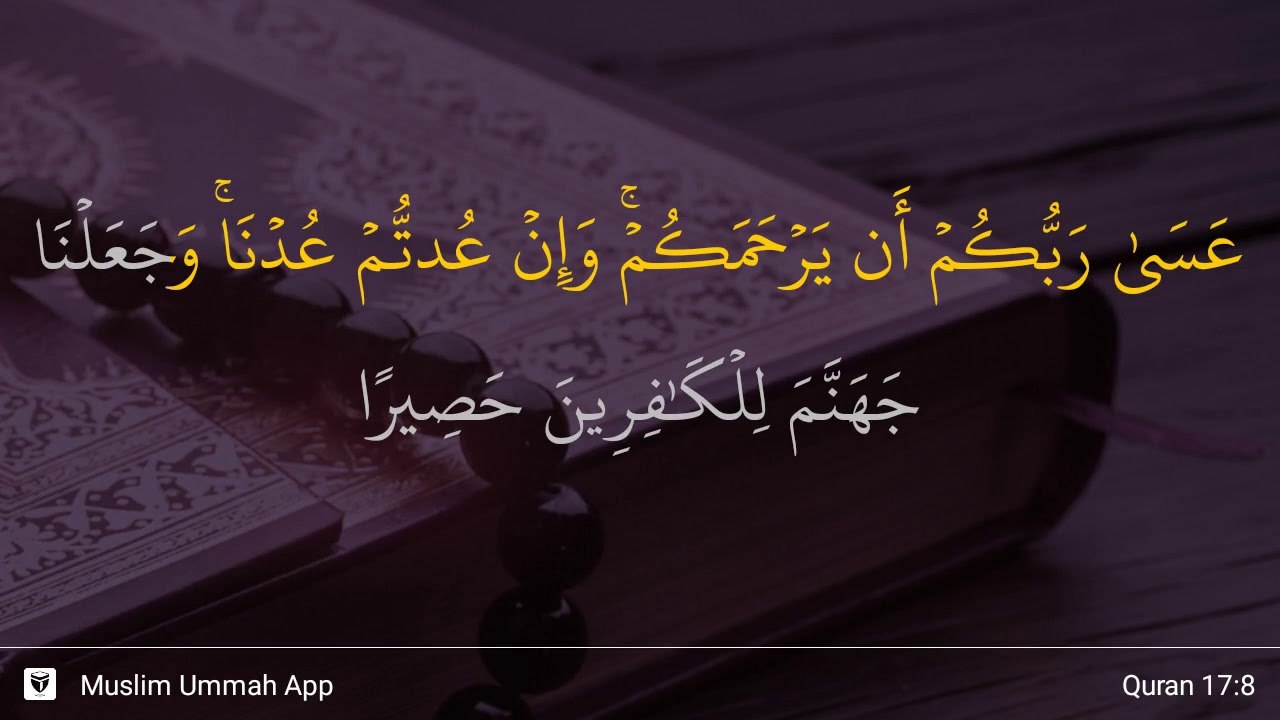 عَسَىٰ رَبُّكُمۡ أَن يَرۡحَمَكُمۡۚ وَإِنۡ عُدتُّمۡ عُدۡنَاۚ وَجَعَلۡنَا
جَهَنَّمَ لِلۡكَٰفِرِينَ حَصِيرًا
Muslim Ummah App
Quran 17:8